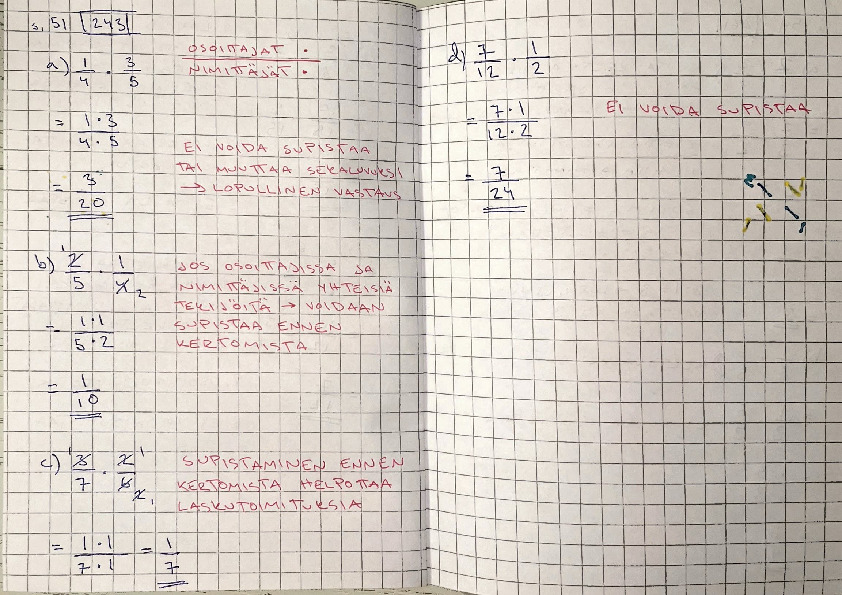 s. 51 243
a) 1/4 · 3/5
OSOITTAJAT ·
NIMITTÄJÄT ·
= 1·3/4·5
= 3/20
EI VOIDA SUPISTAA
TAI MUUTTAA SEKALUVUKSI
→ LOPULLINEN VASTAUS
b) ¹2/5 · 1/4₂
= 1·1/5·2
= 1/10
JOS OSOITTAJISSA JA
NIMITTÄJISSÄ YHTEISIÄ
TEKIJÖITÄ → VOIDAAN
SUPISTAA ENNEN
KERTOMISTA
c) ¹3/7 · 2¹/6 2₁
= 1·1/7·1 = 1/7
SUPISTAMINEN ENNEN
KERTOMISTA HELPOTTAA
LASKUTOIMITUKSIA
d) 7/12 · 1/2
= 7·1/12·2
= 7/24
EI VOIDA SUPISTAA